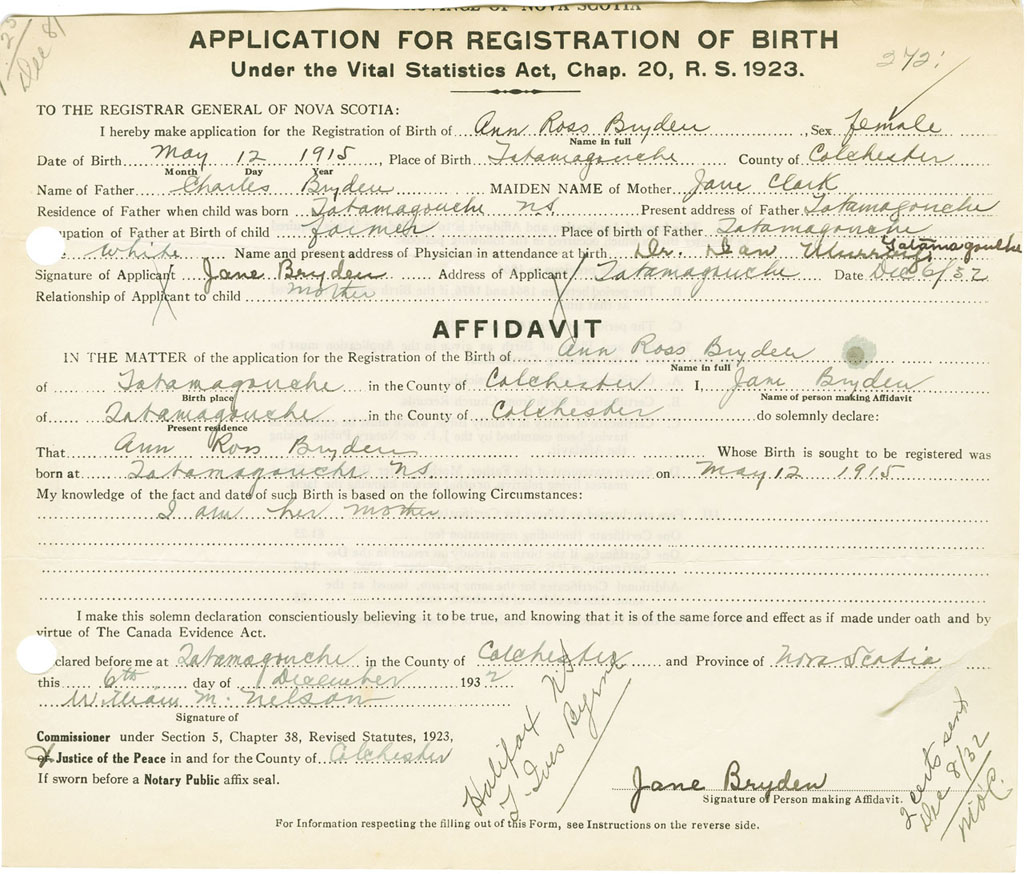 PROVINCE OF NOVA SCOTIA
Dec 8/
APPLICATION FOR REGISTRATION OF BIRTH
Under the Vital Statistics Act, Chap. 20, R. S. 1923.
272
TO THE REGISTRAR GENERAL OF NOVA SCOTIA:
I hereby make application for the Registration of Birth of Ann Ross Bryden, Sex female
Name in full
Date of Birth May 12 1915, Place of Birth Tatamagouche County of Colchester
Month Day Year
Name of Father Charles Bryden MAIDEN NAME of Mother Jane Clark
Residence of Father when child was born Tatamagouche NS Present address of Father Tatamagouche
upation of Father at Birth of child farmer Place of birth of Father Tatamagouche
e White Name and present address of Physician in attendance at birth Dr. Dan Murray Tatamagouche
Signature of Applicant Jane Bryden Address of Applicant Tatamagouche Date Dec 6/32
Relationship of Applicant to child mother
AFFIDAVIT
IN THE MATTER of the application for the Registration of the Birth of Ann Ross Bryden
Name in full
of Tatamagouche in the County of Colchester I, Jane Bryden
Birth place Name of person making Affidavit
of Tatamagouche in the County of Colchester do solemnly declare:
Present residence
That Ann Ross Bryden Whose Birth is sought to be registered was
born at Tatamagouche NS on May 12 1915
My knowledge of the fact and date of such Birth is based on the following Circumstances:
I am her mother
I make this solemn declaration conscientiously believing it to be true, and knowing that it is of the same force and effect as if made under oath and by
virtue of The Canada Evidence Act.
clared before me at Tatamagouche in the County of Colchester and Province of Nova Scotia
this 6th day of December 1932
William M. Nelson
Signature of
Commissioner under Section 5, Chapter 38, Revised Statutes, 1923,
or Justice of the Peace in and for the County of Colchester
If sworn before a Notary Public affix seal.
Halifax NS
T. Ives Byrne
Jane Bryden
Signature of Person making Affidavit.
2 certs sent
Dec 8/32
For Information respecting the filling out of this Form, see Instructions on the reverse side.